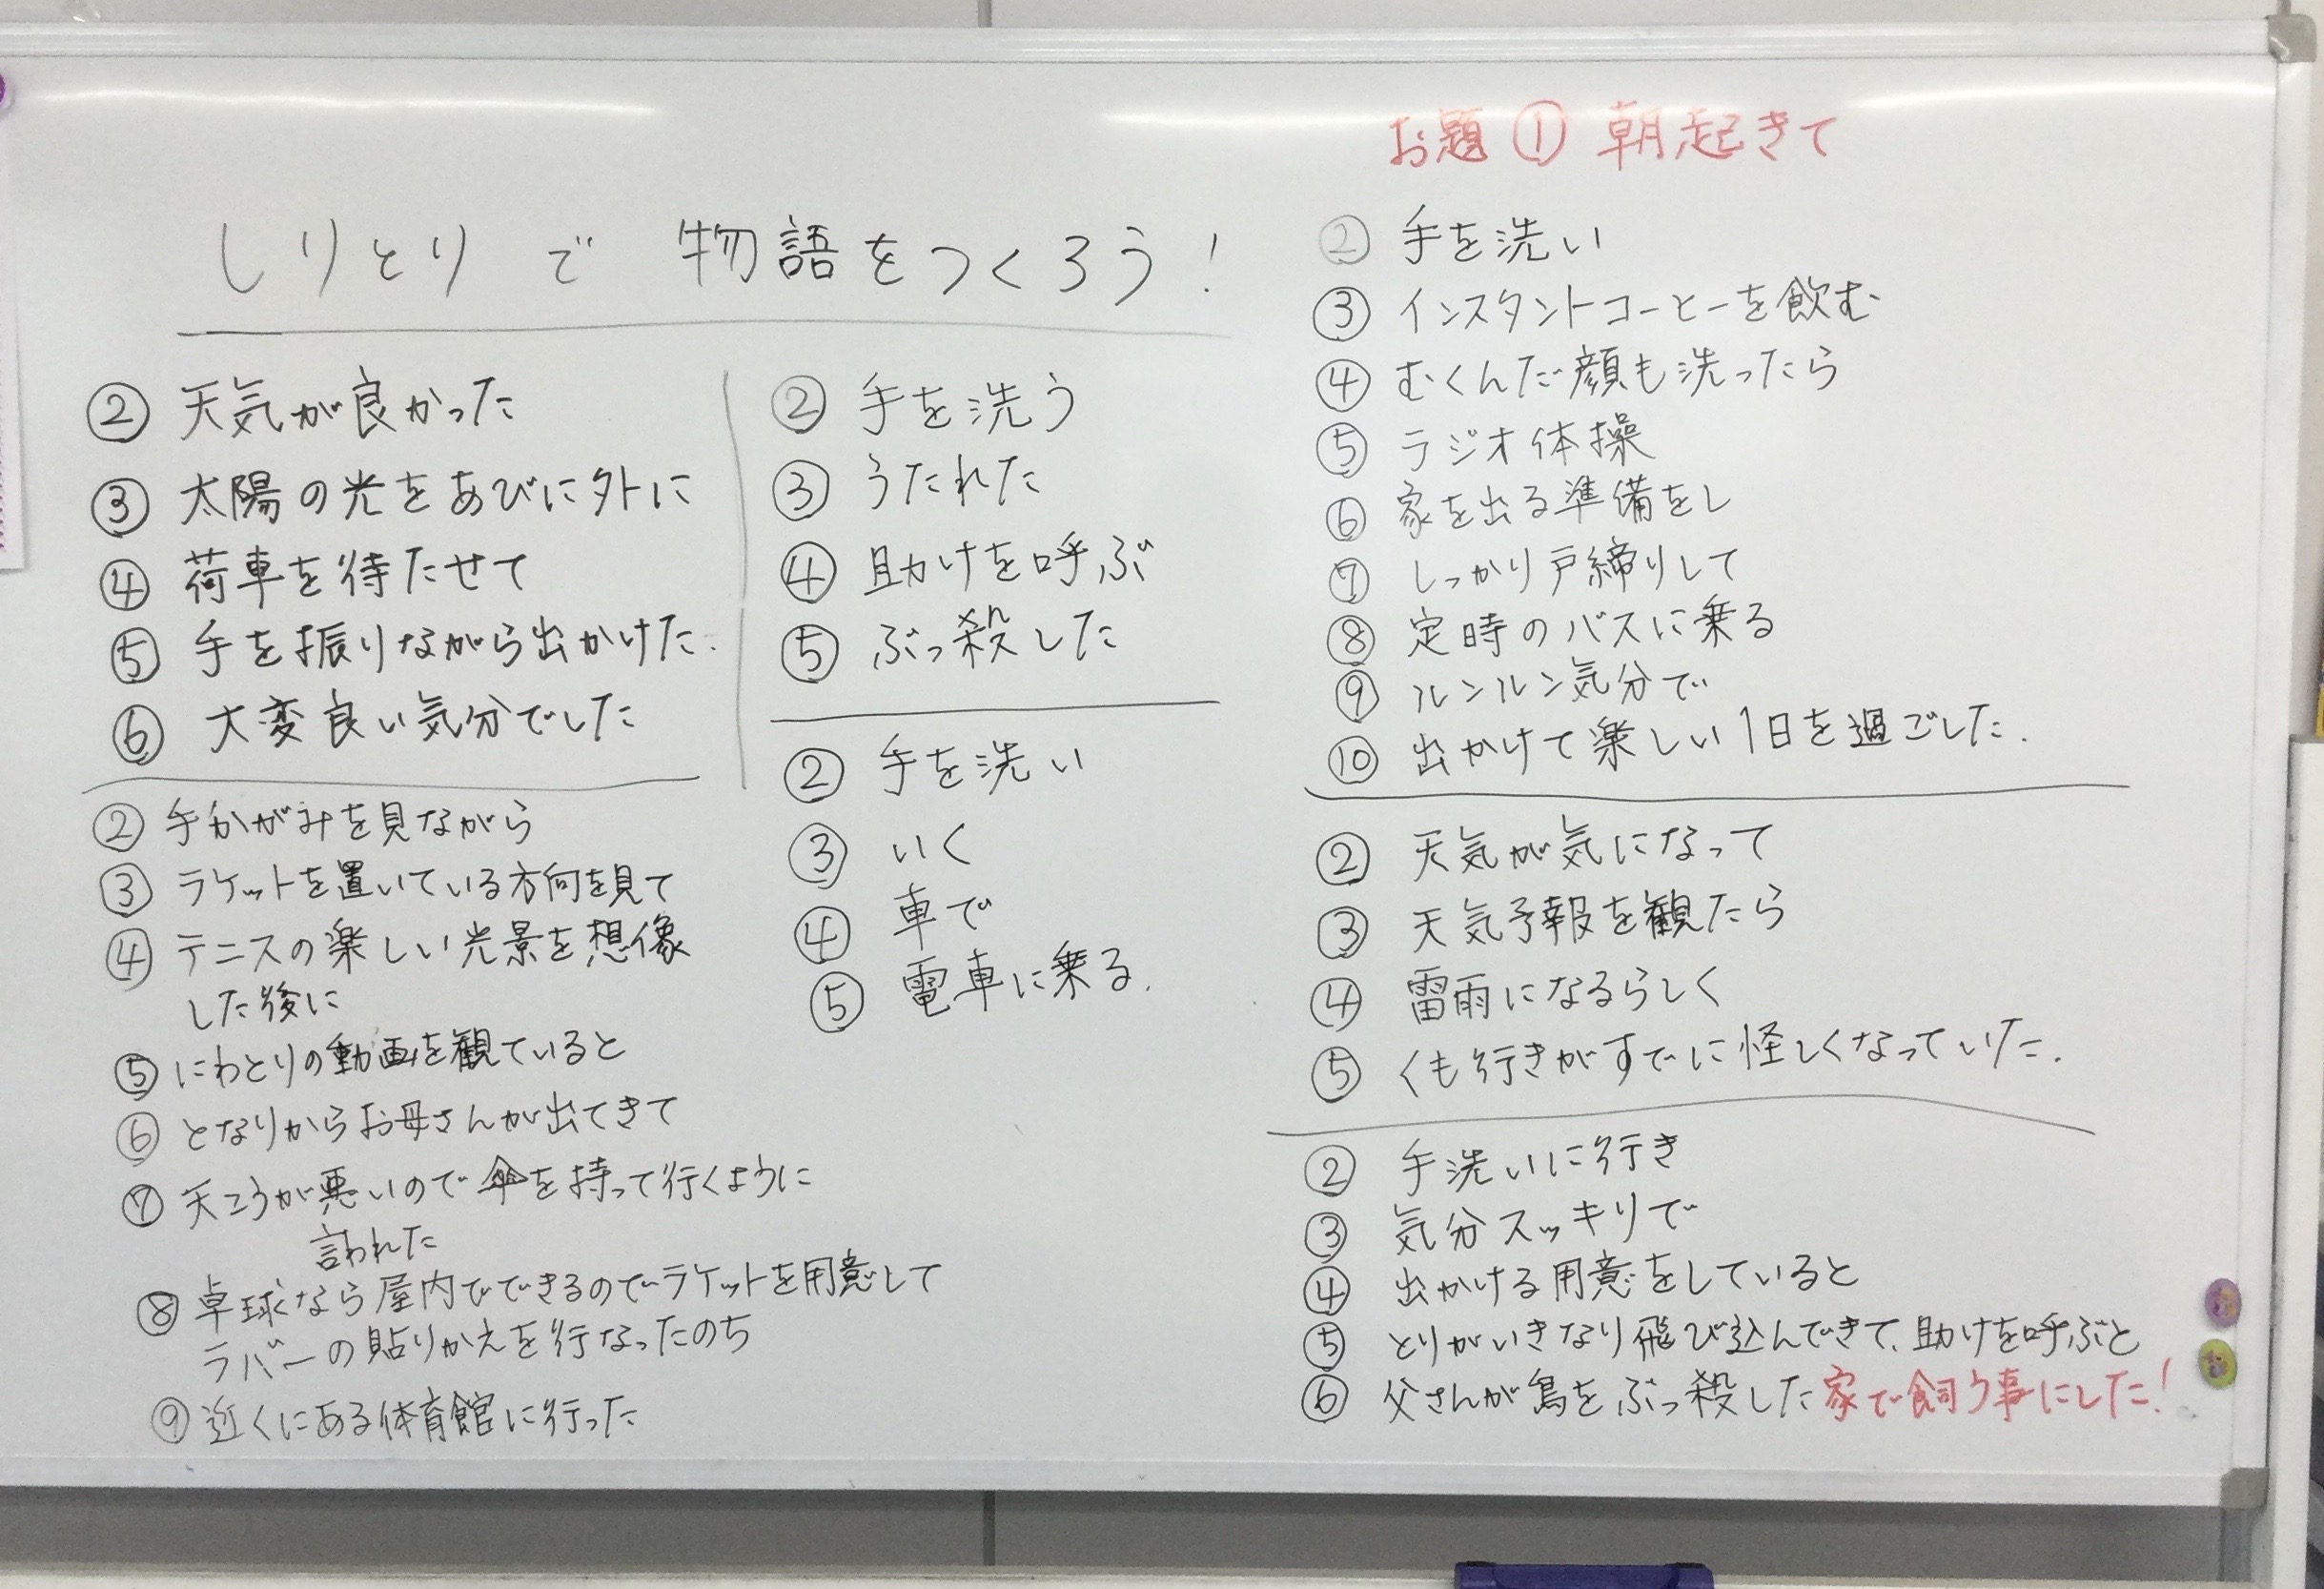 しりとりで 物語をつくろう!
② 天気が良かった
③ 太陽の光をあびに外に
④ 荷車を待たせて
⑤ 手を振りながら出かけた.
⑥ 大変良い気分でした
② 手かがみを見ながら
③ ラケットを置いている方向を見て
④ テニスの楽しい光景を想像
した後に
⑤ にわとりの動画を観ていると
⑥ となりからお母さんが出てきて
⑦ 天こうが悪いので傘を持って行くように
言われた
⑧ 卓球なら屋内でできるのでラケットを用意して
ラバーの貼りかえを行なったのち
⑨ 近くにある体育館に行った
② 手を洗う
③ うたれた
④ 助けを呼ぶ
⑤ ぶっ殺した
② 手を洗い
③ いく
④ 車で
⑤ 電車に乗る.
お題 ① 朝起きて
② 手を洗い
③ インスタントコーヒーを飲む
④ むくんだ顔も洗ったら
⑤ ラジオ体操
⑥ 家を出る準備をし
⑦ しっかり戸締りして
⑧ 定時のバスに乗る
⑨ ルンルン気分で
⑩ 出かけて楽しい1日を過ごした.
② 天気が気になって
③ 天気予報を観たら
④ 雷雨になるらしく
⑤ くも行きがすでに怪しくなっていた.
② 手洗いに行き
③ 気分スッキリで
④ 出かける用意をしていると
⑤ とりがいきなり飛び込んできて、助けを呼ぶと
⑥ 父さんが鳥をぶっ殺した 家で飼う事にした!